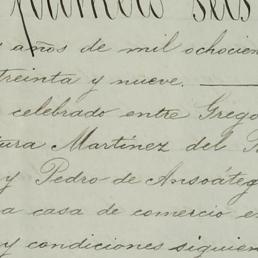 números seis
años de mil ochocien
treinta y nueve.
celebrado entre Grego
tura Martínez del
y Pedro de Ansoáteg
a casa de comercio e
y condiciones siguien